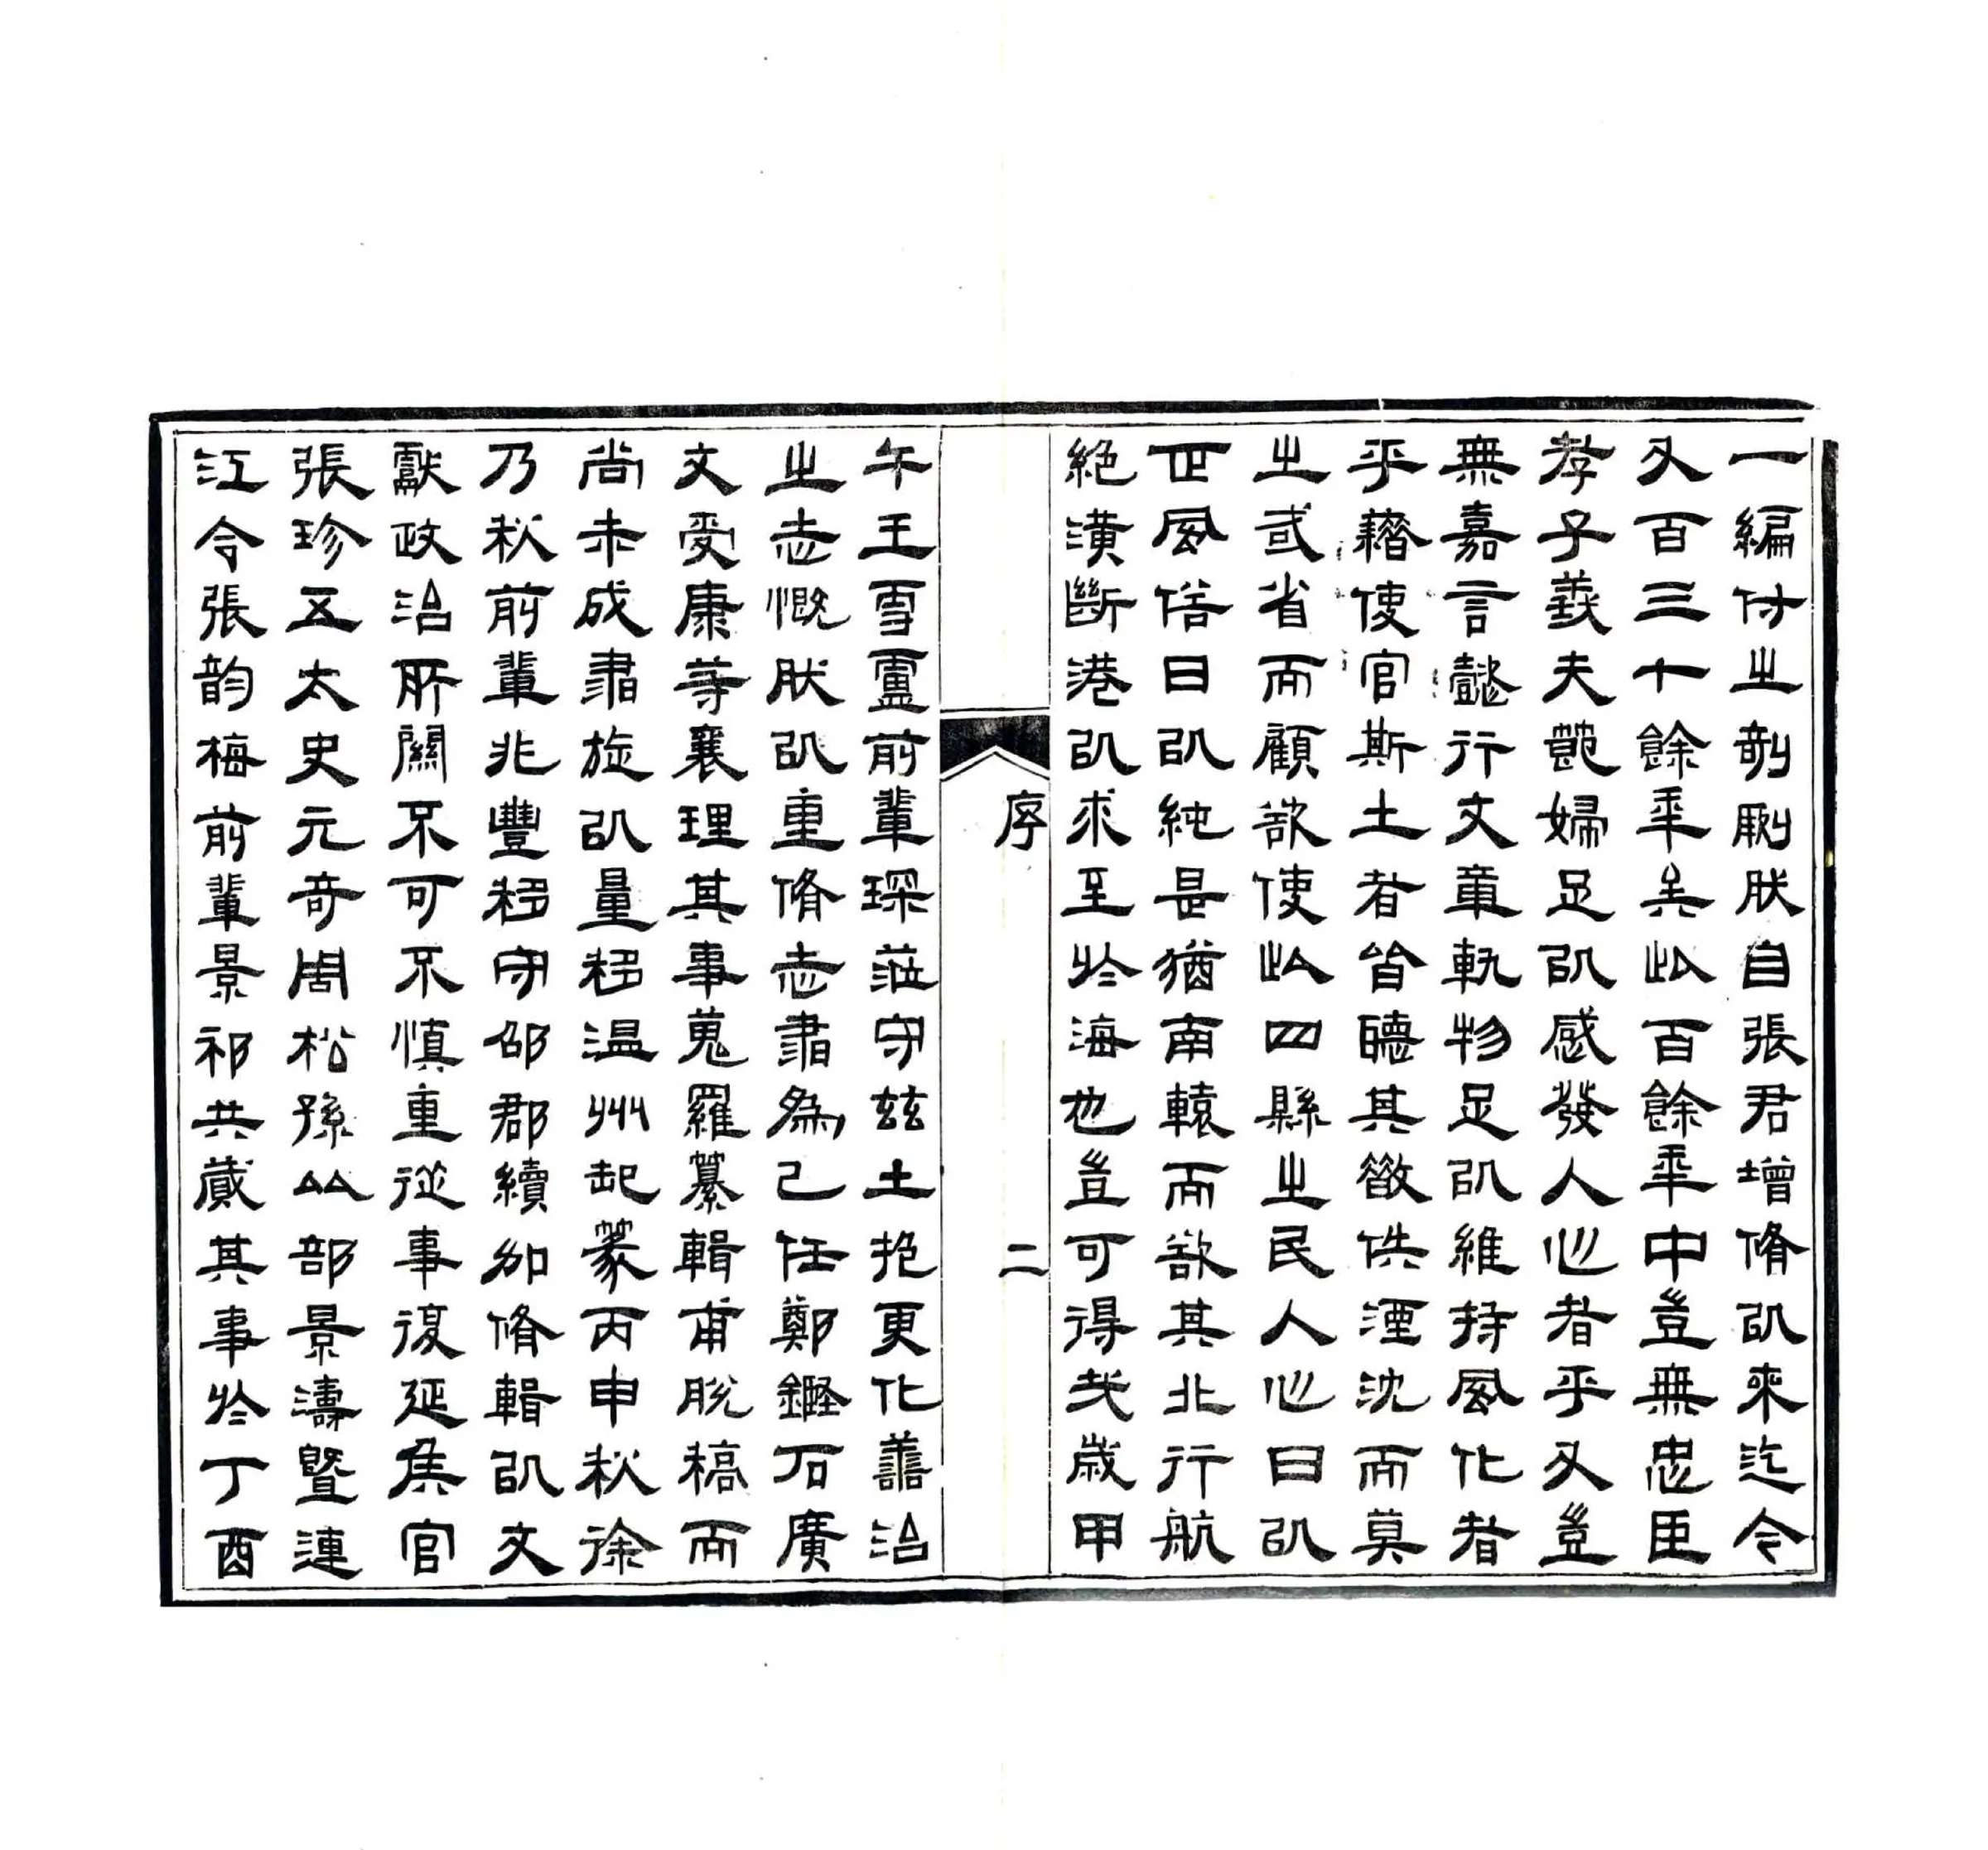 一編付之剞劂肰自張君增脩㕥來迄今
又百三十餘年矣此百餘年中豈無忠臣
孝子義夫節婦足㕥感發人心者乎又豈
無嘉言懿行文章軌物足㕥維持風化者
乎藉使官斯土者皆聽其散佚湮沈而莫
之或省而顧欲使此四縣之民人心日㕥
正風俗日㕥純是猶南轅而欲其北行航
絕潢斷港㕥求至於海也豈可得哉歲甲
序
二
午王雪廬前輩琛蒞守茲土抱更化善治
之志慨肰㕥重脩志書為己任鄭鏗石廣
文受康等襄理其事蒐羅纂輯甫脫稿而
尚未成書旋㕥量移溫州起篆丙申秋徐
乃秋前輩兆豐移守邵郡續加脩輯㕥文
獻政治所關不可不慎重從事復延侯官
張珍五太史元奇周松孫比部景濤暨連
江令張韵梅前輩景祁共蕆其事於丁酉